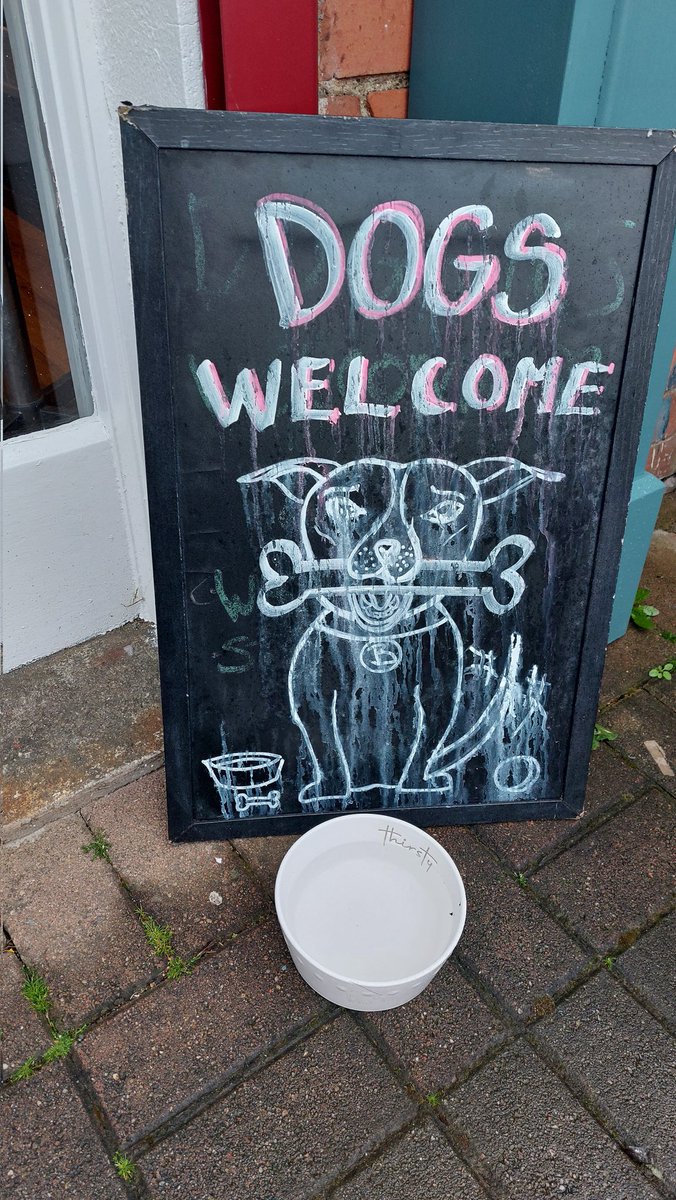 DOGS
WELCOME
W
S
thirsty